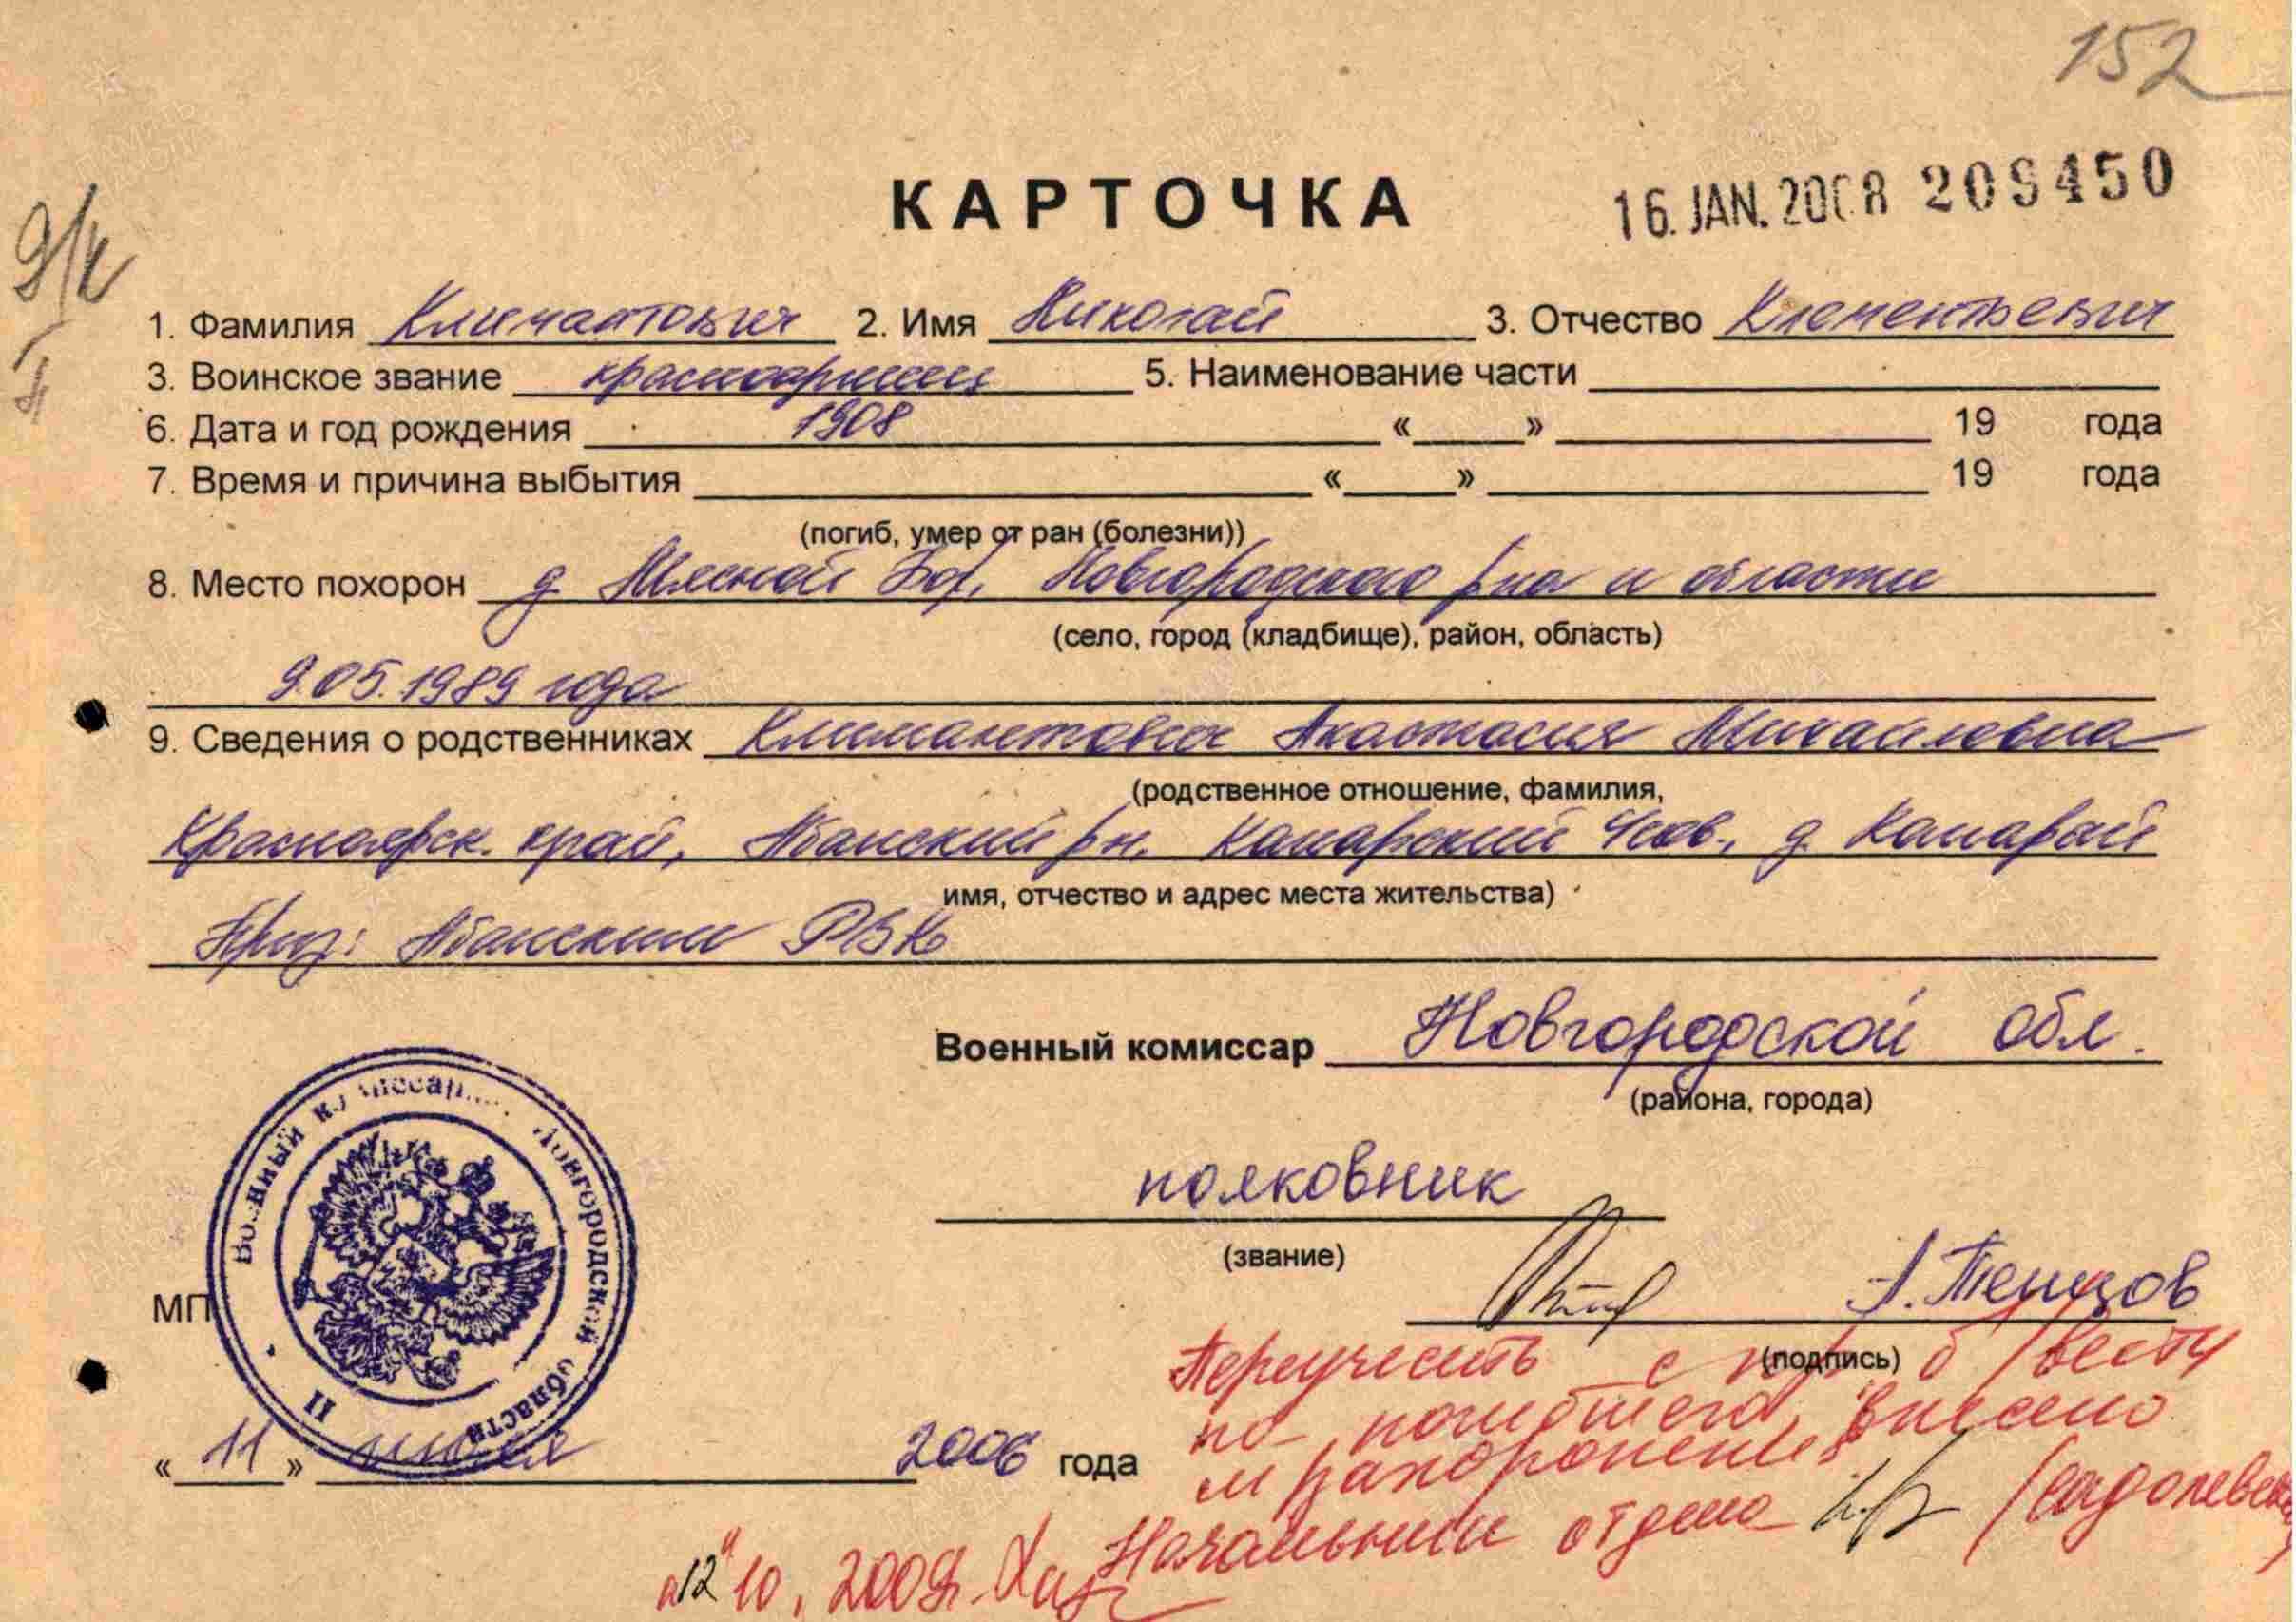 152
КАРТОЧКА
16. JAN. 2008 209450
1. Фамилия Климантович 2. Имя Николай 3. Отчество Клементьевич
3. Воинское звание красноармеец 5. Наименование части
6. Дата и год рождения 1908 « » 19 года
7. Время и причина выбытия « » 19 года
(погиб, умер от ран (болезни))
8. Место похорон д. Мясной Бор, Новгородского р-на и области
(село, город (кладбище), район, область)
9.05.1989 года
9. Сведения о родственниках Климантович Анастасия Михайловна
(родственное отношение, фамилия,
Красноярск. край, Абанский рн. д.
имя, отчество и адрес места жительства)
Приз: Абанским РВК
Военный комиссар Новгородской обл.
(района, города)
полковник
(звание)
МП
Военный комиссариат Новгородской области
II
(подпись)
« 11 » июля 2006 года
Переучесть с б/вести
на погибшего, внесено
м захоронения
Начальник отдела
"12" 10. 2009г.